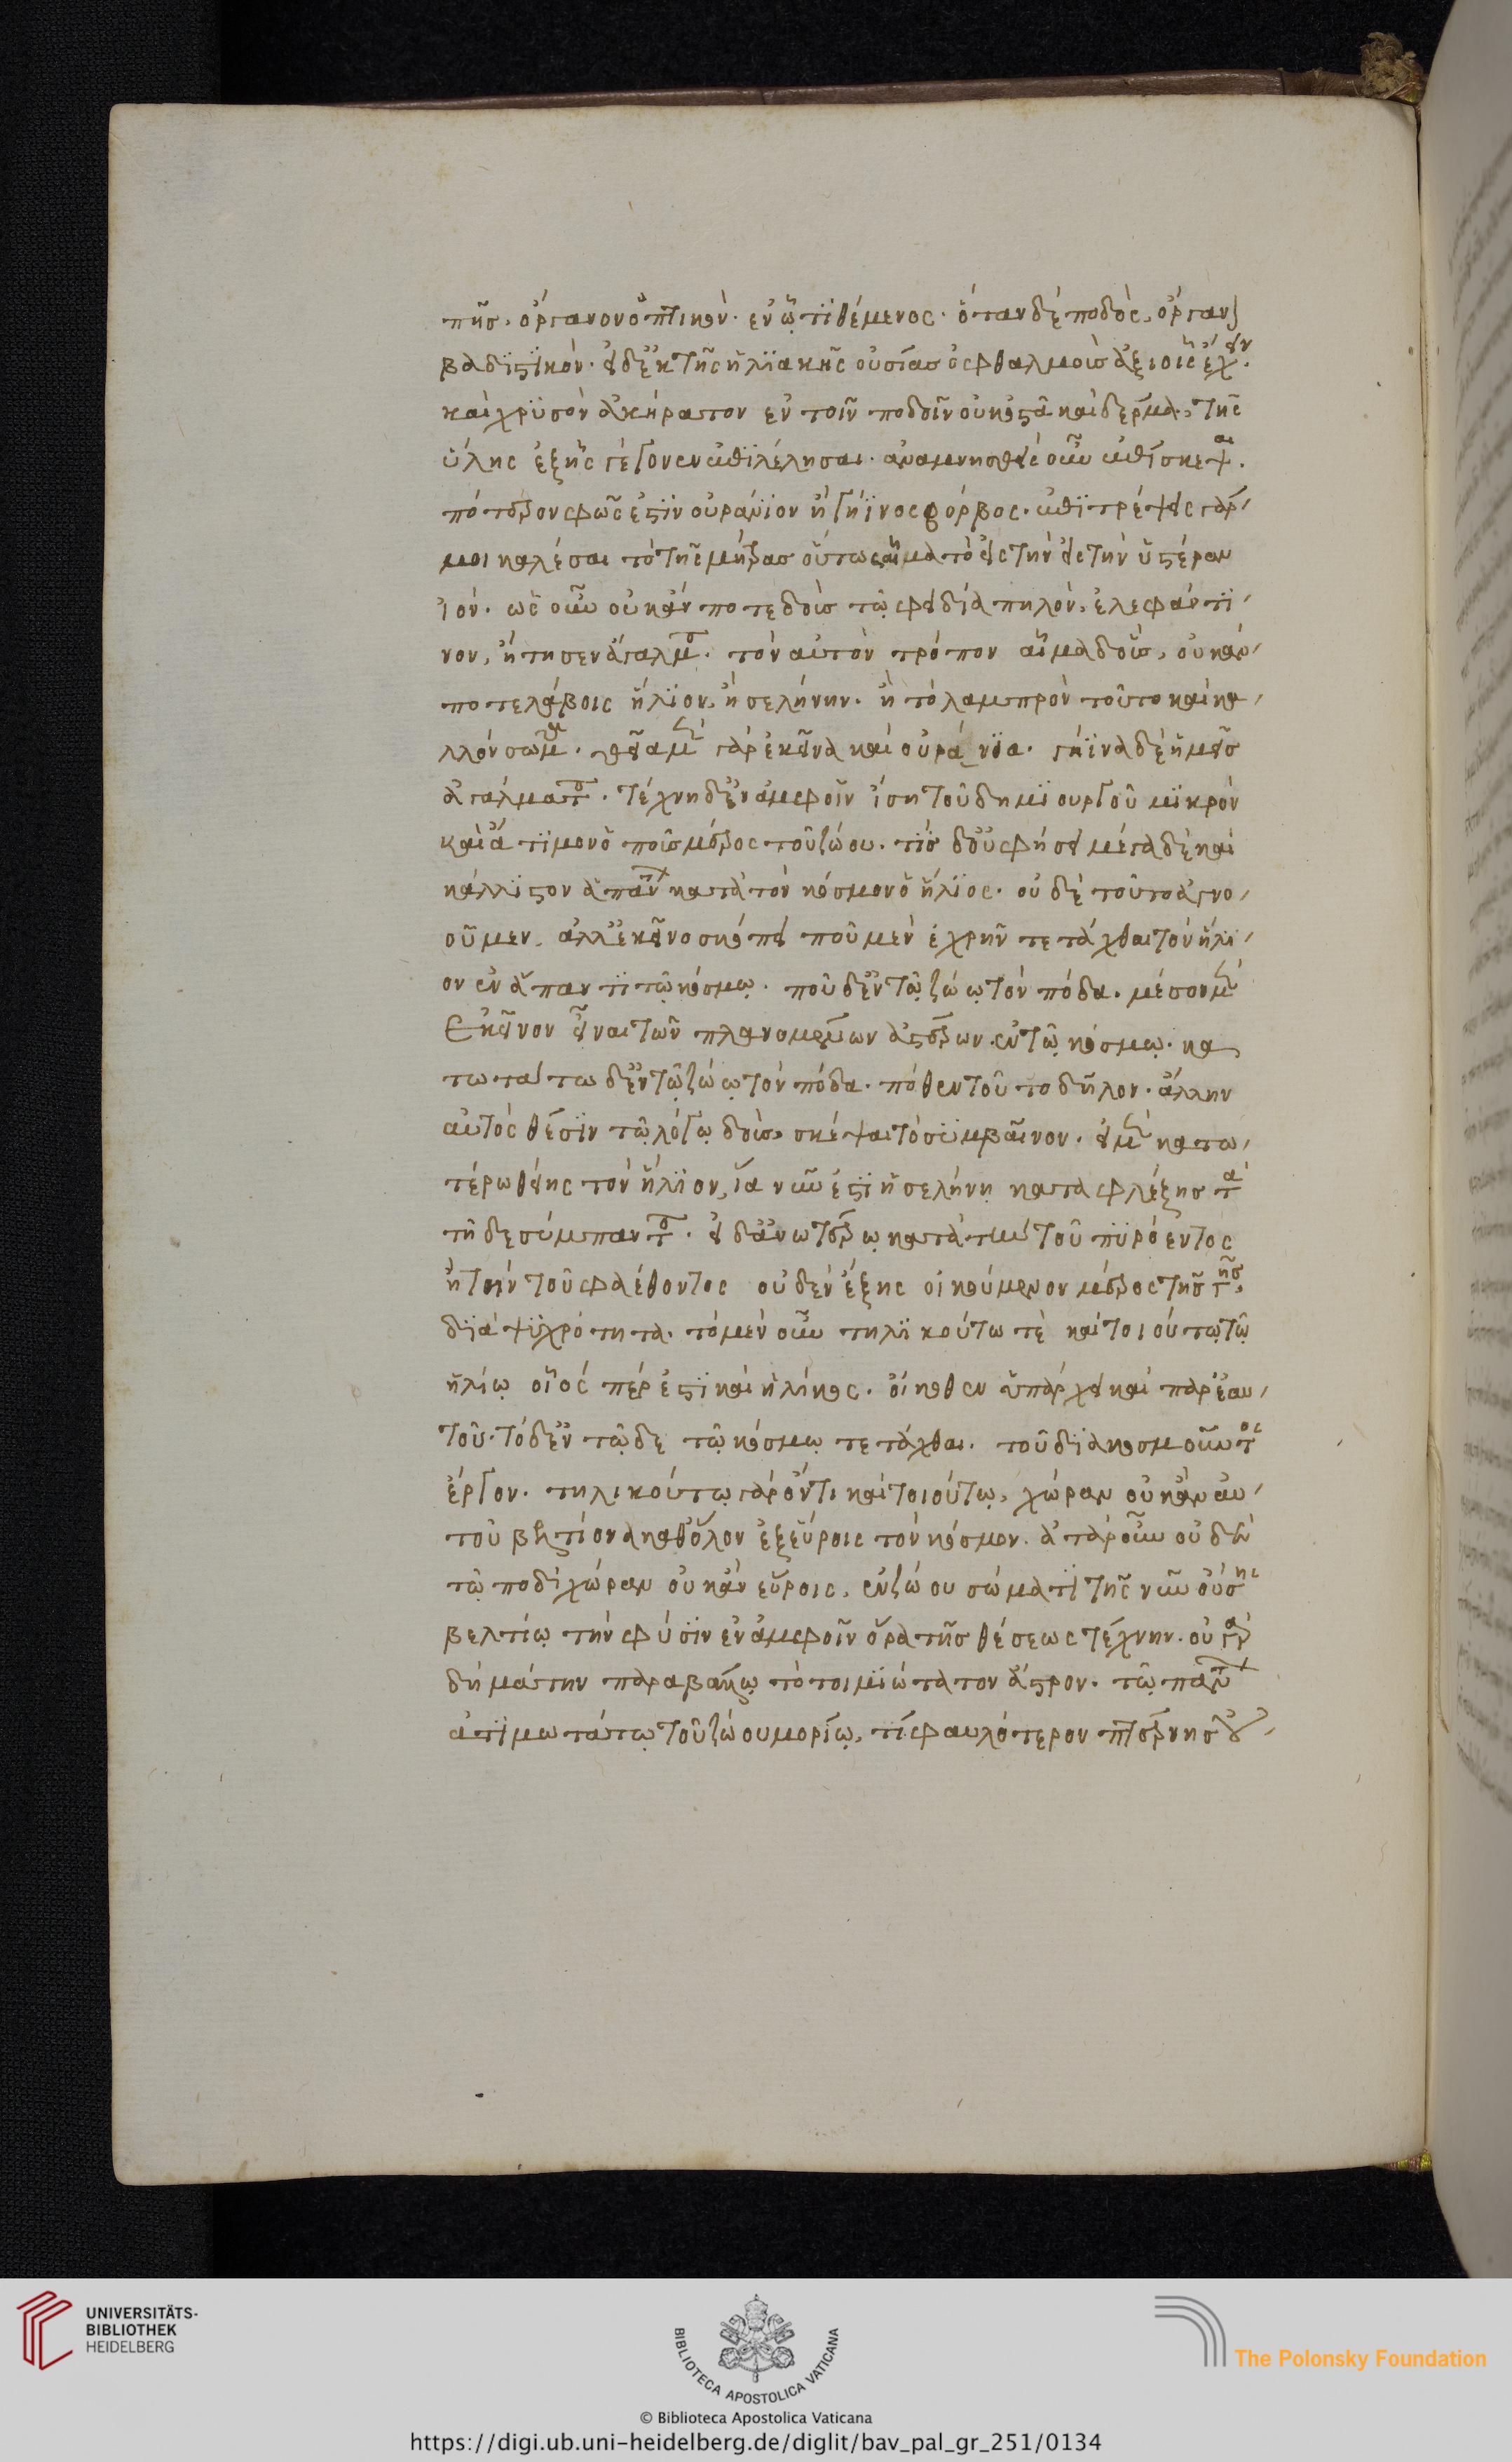 πῆς, ὄργανον ὀπτικὸν ἐνῷ τιθέμενος. ὅταν δὲ ποδὸς, ὄργανον
βαδιστικόν. εἰ δ' ἐκ τῆς ἡλιακῆς οὐσίας ὀφθαλμοὺς ἀξιοῖς ἔχειν.
καὶ χρυσὸν ἀκήρατον ἐν τοῖν ποδοῖν οὐκ ὀστᾶ καὶ δέρμα, τῆς
ὕλης ἐξ ἧς γέγονεν ἐπιλέλησαι. ἀναμνησθεὶς οὖν ἐπίσκεψαι.
πότερον φῶς ἐστιν οὐράνιον ἢ γήϊνος βόρβορος. ἐπιτρέψεις γάρ
μοι καλέσαι τὸ τῆς μητρὸς οὕτως αἷμα τὸ εἰς τὴν εἰς τὴν ὑστέραν
ἰόν. ὡς οὖν οὐκ ἄν ποτε δοὺς τῷ φειδίᾳ πηλὸν, ἐλεφάντι
νον, ᾔτησεν ἄγαλμα. τὸν αὐτὸν τρόπον αἷμα δοὺς, οὐκ ἄν
ποτε λάβοις ἥλιον, ἢ σελήνην. ἢ τὸ λαμπρὸν τοῦτο καὶ κα
λλὸν σῶμα. θεῖα μὲν γὰρ ἐκεῖνα καὶ οὐράνια. γήϊνα δὲ ἡμεῖς
ἀγάλματα. τέχνη δ' ἐν ἀμφοῖν ἴση τοῦ δημιουργοῦ μικρὸν
καὶ ἄτιμον ὁ ποῦς μέρος τοῦ ζώου. τίς δ' οὔ φησι μέγα δὲ καὶ
κάλλιστον ἁπάντων κατὰ τὸν κόσμον ὁ ἥλιος. οὐδὲ τοῦτο ἀγνο
οῦμεν. ἀλλ' ἐκεῖνο σκόπει ποῦ μὲν ἐχρῆν τετάχθαι τὸν ἥλι
ον ἐν ἅπαντι τῷ κόσμῳ. ποῦ δ' ἐν τῷ ζώῳ τὸν πόδα. μέσον μὲν
ἐκεῖνον εἶναι τῶν πλανομένων ἀστέρων ἐν τῷ κόσμῳ. κα
τωτάτω δ' ἐν τῷ ζώῳ τὸν πόδα. πόθεν τοῦτο δῆλον. ἄλλην
αὐτὸς θέσιν τῷ λόγῳ δοὺς, σκέψαι τὸ συμβαῖνον. εἰ μὲν κατω
τέρω θείης τὸν ἥλιον, ἵνα νῦν ἐστι ἡ σελήνη καταφλέξης τὰ
τῇδε σύμπαντα. εἰ δ' ἀνωτέρω κατὰ τὴν τοῦ πυρόεντος
ἢ τὴν τοῦ φαέθοντος οὐδὲν ἕξεις οἰκούμενον μέρος τῆς γῆς,
διὰ ψυχρότητα. τὸ μὲν οὖν τηλικούτῳ τὲ καὶ τοιούτῳ τῷ
ἡλίῳ οἷός πέρ ἐστι καὶ ἡλίκος. οἴκοθεν ὑπάρχει καὶ παρ' ἑαυ
τοῦ. τὸ δ' ἐν τῷδε τῷ κόσμῳ τετάχθαι. τοῦ διακοσμοῦντος
ἔργον. τηλικούτῳ γὰρ ὄντι καὶ τοιούτῳ, χώραν οὐκ ἂν αὐ
τοῦ βελτίονα καθόλον ἐξεύροις τὸν κόσμον. ἀτὰρ οὖν οὐδὲ
τῷ ποδὶ χώραν οὐκ ἂν εὕροις, ἐν ζώου σώματι τῆς νῦν οὔσης
βελτίω τὴν φύσιν ἐν ἀμφοῖν ὅρα τῆς θέσεως τέχνην. οὐ γὰρ
δὴ μάτην παραβάλλω τὸ τοιμιώτατον ἄστρον. τῷ πάντων
ἀτιμωτάτῳ τοῦ ζώου μορίῳ, τί φαυλότερον πτέρνης οὐ
UNIVERSITÄTS-
BIBLIOTHEK
HEIDELBERG
BIBLIOTECA APOSTOLICA VATICANA
The Polonsky Foundation
© Biblioteca Apostolica Vaticana
https://digi.ub.uni-heidelberg.de/diglit/bav_pal_gr_251/0134